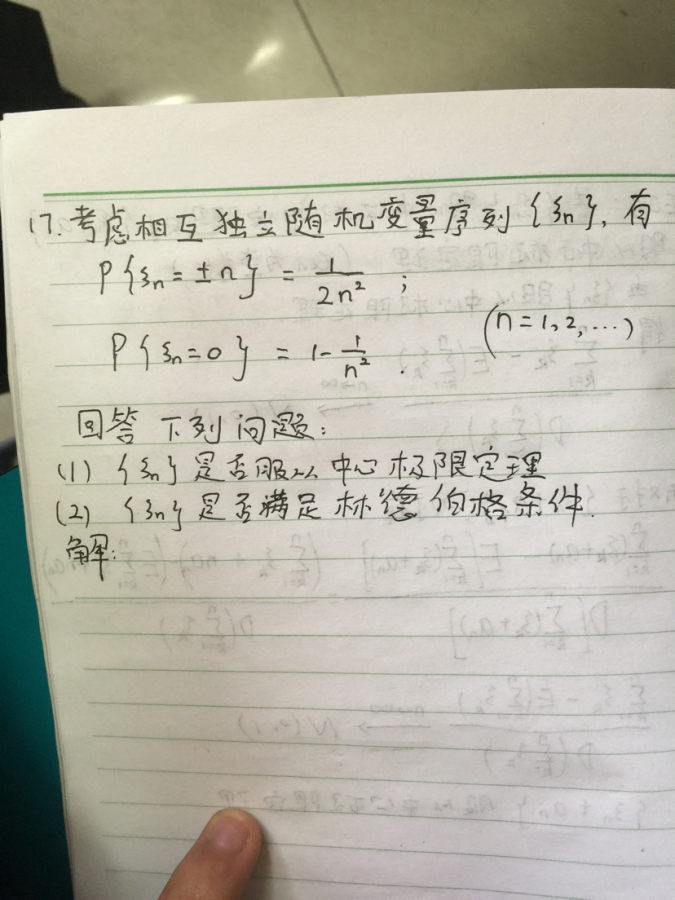 17. 考虑相互独立随机变量序列{ξn}, 有
P{ξn = ±n} = 1/2n² ;
P{ξn = 0} = 1 - 1/n² . (n = 1, 2, ...)
回答下列问题:
(1) {ξn}是否服从中心极限定理
(2) {ξn}是否满足林德伯格条件.
解: